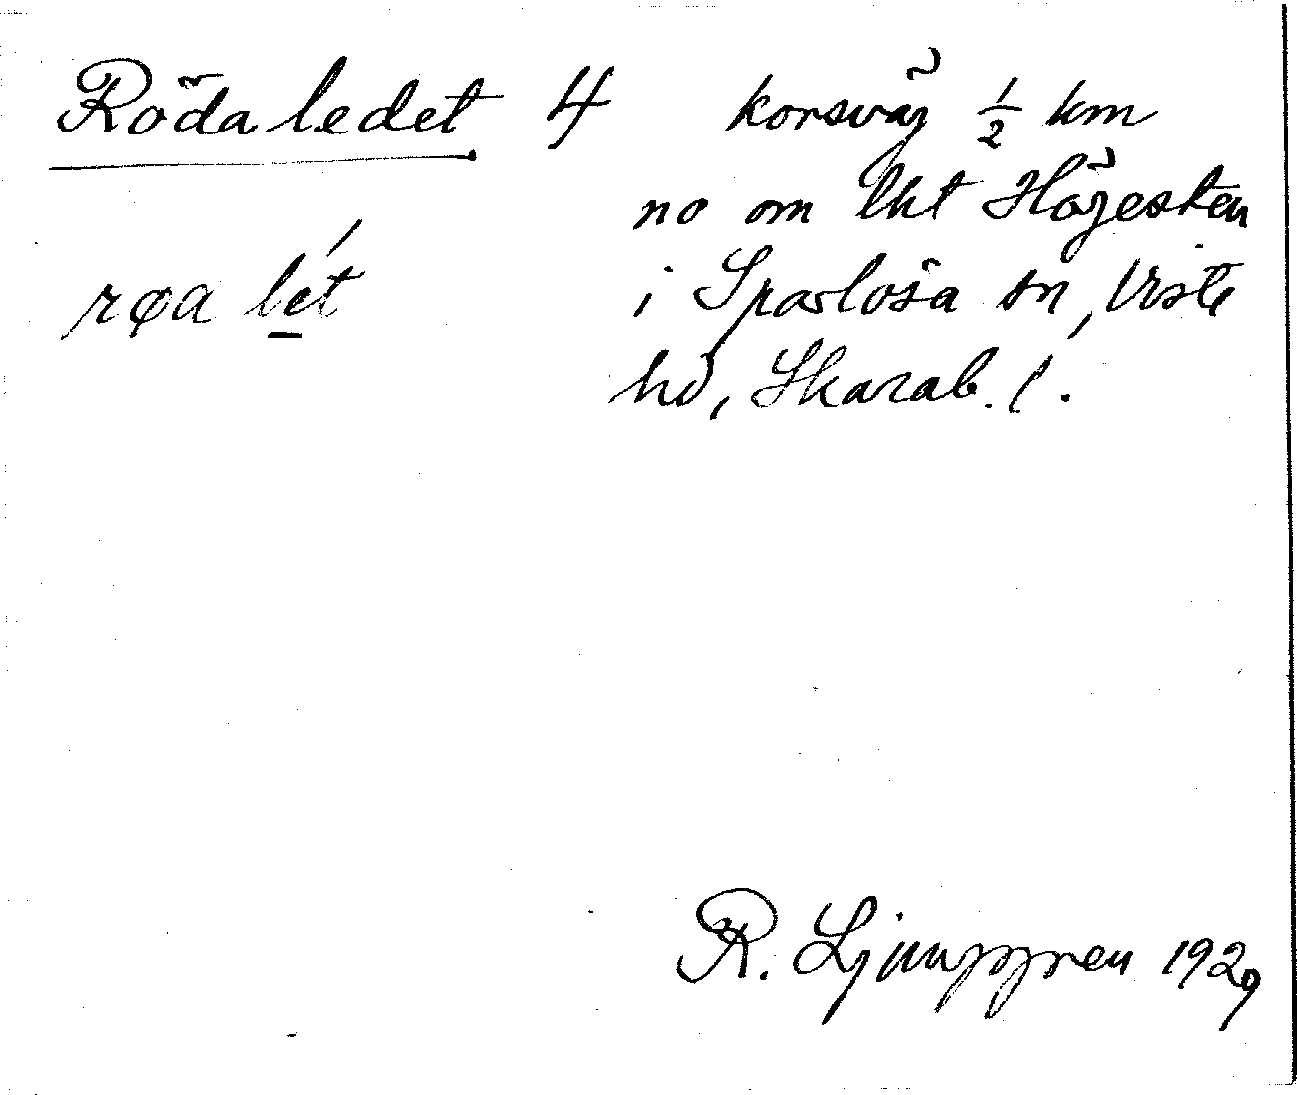 Röda ledet 4 korsväg ½ km
no om lht Högesten
røa lét
i Sparlösa sn, Viste
hd, Skarab. l.
R. Ljunggren 1929